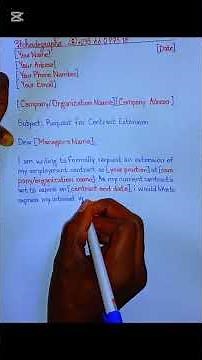 [Your Name]
[Your Adress]
[Your Phone Number]
[Your Email]
[Date]
[Company/Organization Name][Company Adress]
Subject: Request for Contract Extension
Dear [Managers Name],
I am writing to formally request an extension of
my employment contract as [your position] at [com
pany/organization name]. As my current contract is
set to expire on [contract end date], I would like to
express my interest